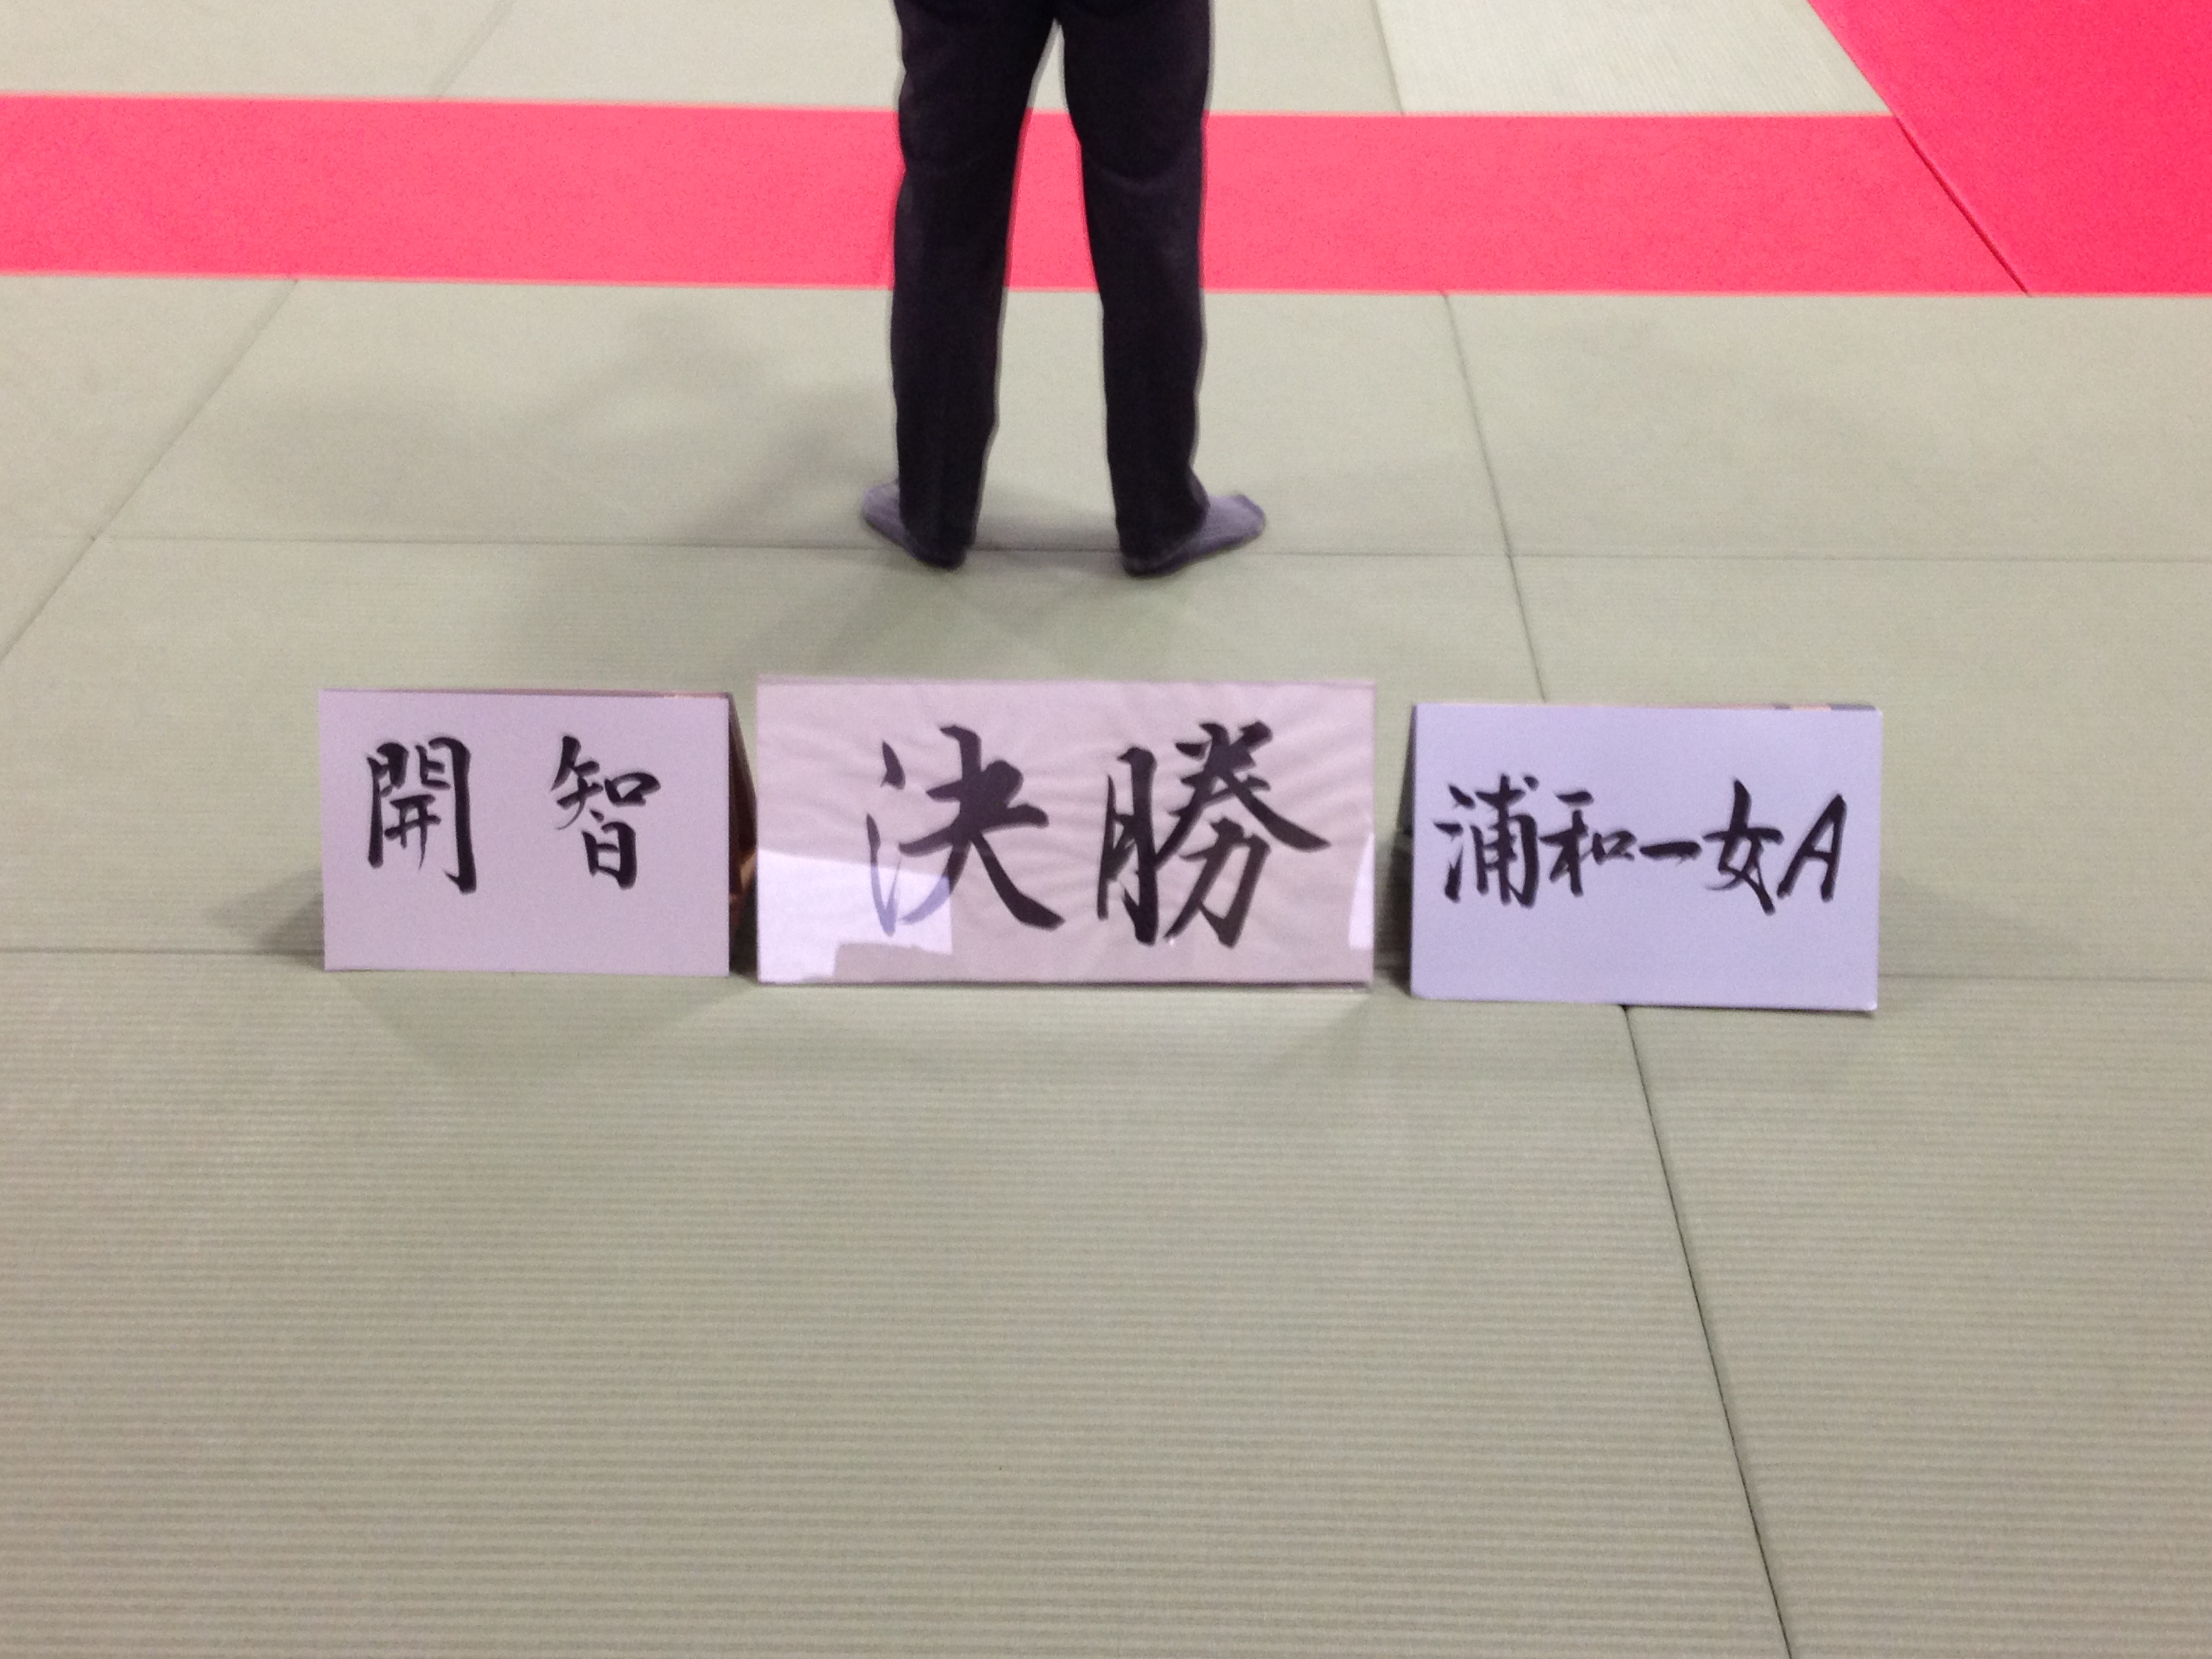 開智
決勝
浦和一女A